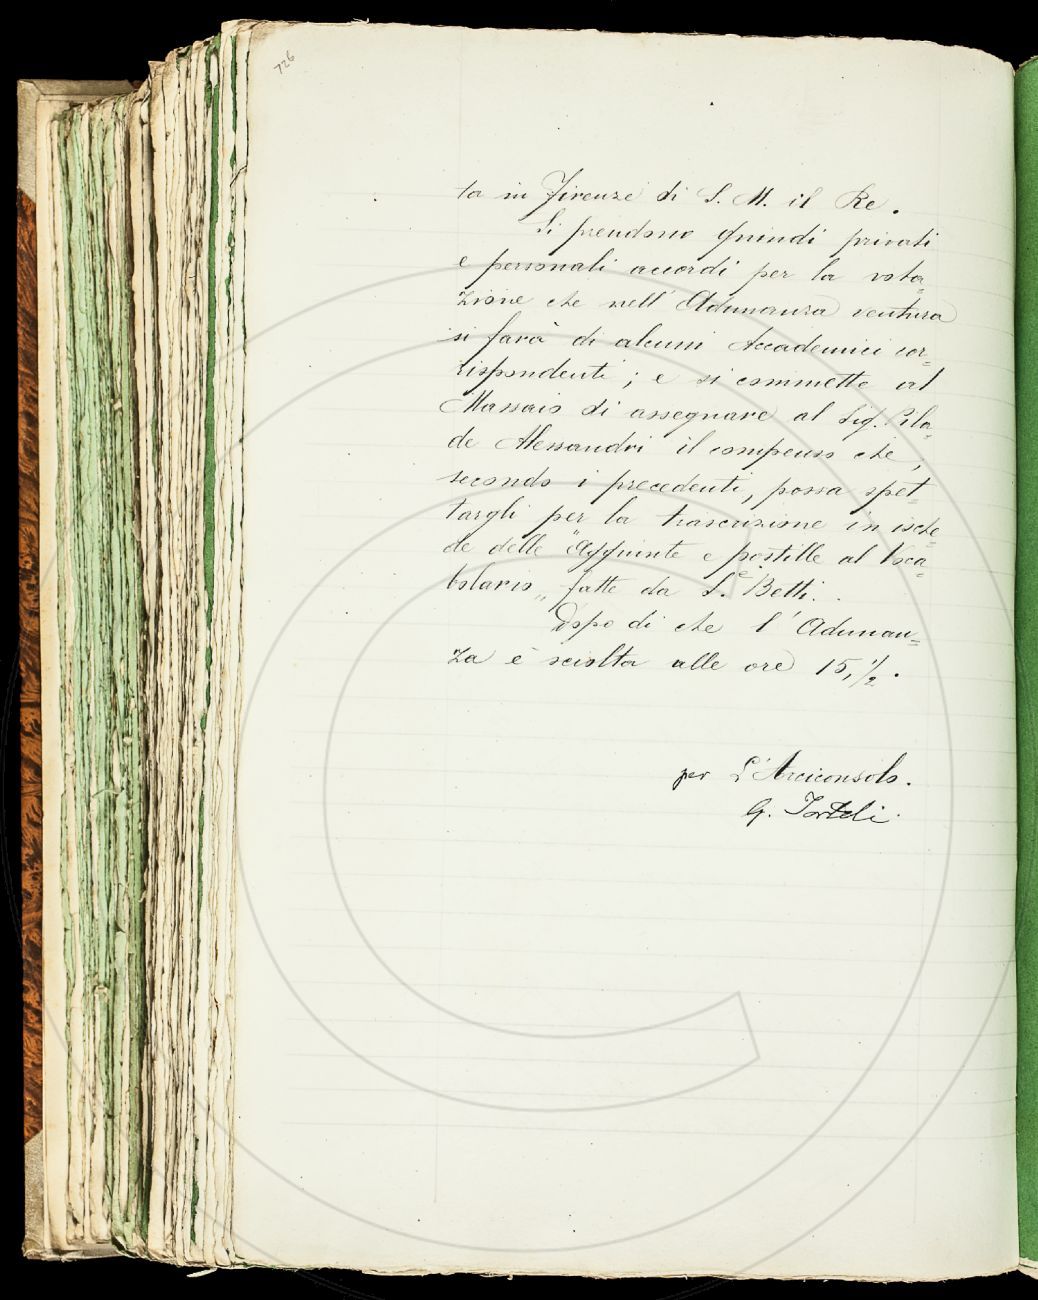 726
ta in Firenze di S. M. il Re.
Si prendono quindi privati
e personali accordi per la vota=
zione che nell'Adunanza ventura
si farà di alcuni Accademici cor=
rispondenti; e si commette al
Massaio di assegnare al Sig. Pila=
de Alessandri il compenso che,
secondo i precedenti, possa spet=
targli per la trascrizione in ische=
de delle "Aggiunte e postille al Voca=
bolario„ fatte da S.e Betti.
Dopo di che l'Adunan=
za è sciolta alle ore 15,1/2.
per L'Arciconsolo.
G. Tortoli.